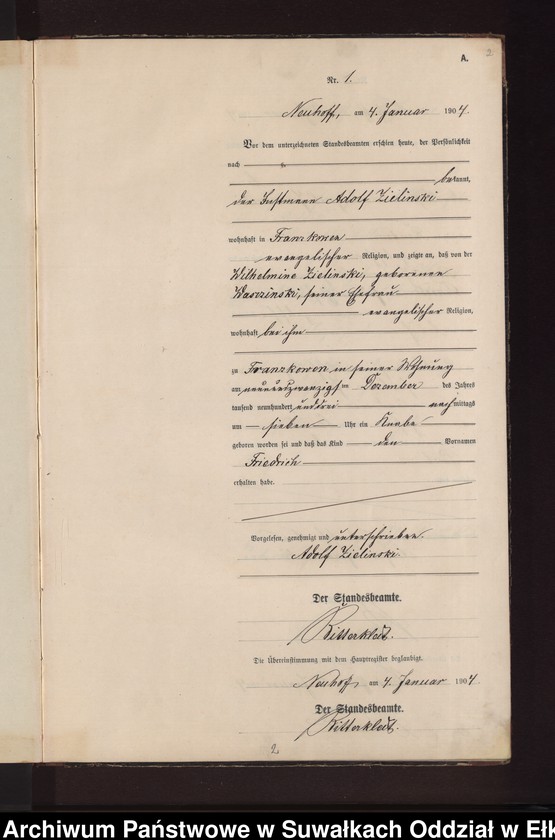 A.
2
Nr. 1.
Neuhoff, am 4. Januar 1904.
Vor dem unterzeichneten Standesbeamten erschien heute, der Persönlichkeit
nach
bekannt,
der Instmann Adolf Zielinski
wohnhaft in Franzkowen
evangelischer Religion, und zeigte an, daß von der
Wilhelmine Zielinski, geborenen
Wasczinski, seiner Ehefrau
evangelischer Religion,
wohnhaft bei ihm
zu Franzkowen in seiner Wohnung
am neunundzwanzigsten Dezember des Jahres
tausend neunhundert und drei nachmittags
um sieben Uhr ein Knabe
geboren worden sei und daß das Kind den Vornamen
Friedrich
erhalten habe.
Vorgelesen, genehmigt und unterschrieben.
Adolf Zielinski.
Der Standesbeamte.
Ritterkleit.
Die Übereinstimmung mit dem Hauptregister beglaubigt.
Neuhoff, am 4. Januar 1904.
Der Standesbeamte.
Ritterkleit.
2
Archiwum Państwowe w Suwałkach Oddział w Ełk